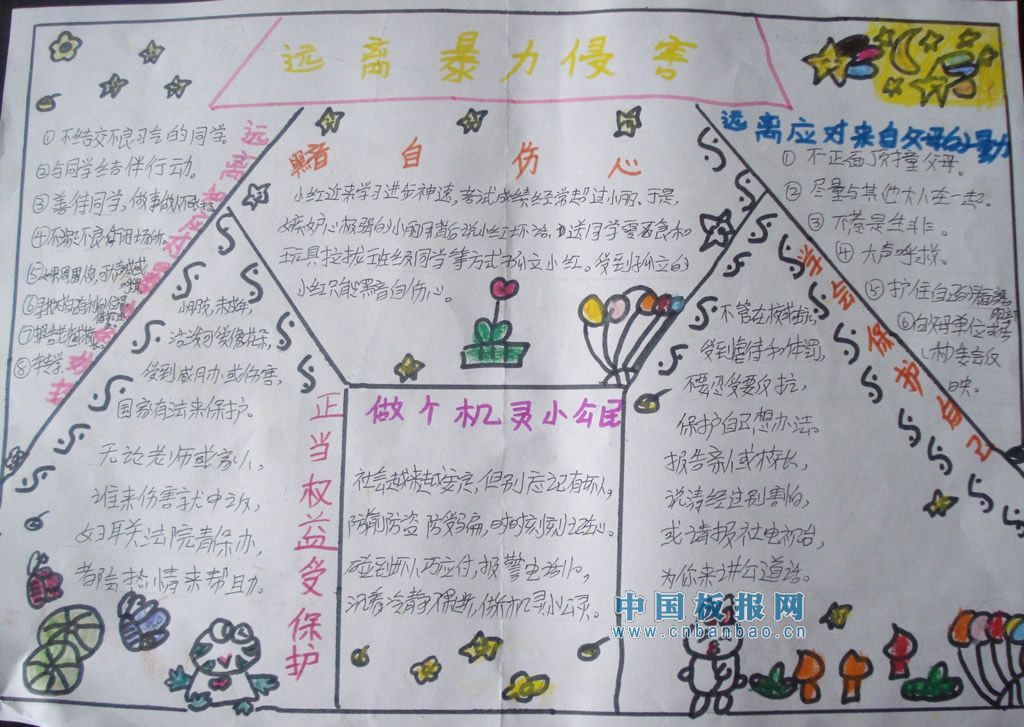 远离暴力侵害
①不结交不良习气的同学。
②与同学结伴行动。
③善待同学,做事
④不
⑧
小朋友,未成年,
活泼可爱像花朵,
受到威胁或伤害,
国家有法来保护。
无论老师或家人,
谁来伤害就申冤,
妇联关法院青保办,
都会热情来帮助。
正当权益受保护
黯自伤心
小红近来学习进步神速,考试成绩经常超过小丽。于是,
嫉妒心极强的小丽背后说小红坏话,也送同学零食和
玩具拉拢班级同学等方式孤立小红。受到孤立的
小红只能黯自伤心。
做个机灵小公民
社会越来越安定,但别忘记有坏人,
防前防盗防受骗,时时刻刻记在心。
碰到坏人巧应付,报警电话
沉着冷静
远离应对来自父母的暴力
①不正面顶撞父母。
②尽量与其他大人在一起。
③不惹是生非。
④大声呼救。
⑤护住自己的
⑥向父母单位或
机构妇委会反
映。
学会保护自己
不管在校
受到虐待和体罚,
不要忍受要反抗,
保护自己想办法。
报告亲人或校长,
说清经过别害怕,
或请报社电视台,
为你来讲公道话。
中国板报网
www.cnbanbao.cn